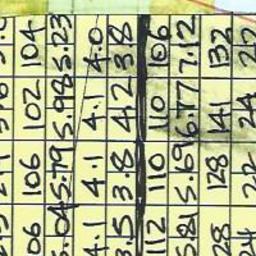 06 106 102 104
5.79 5.98 5.23
4.1 4.1 4.1 4.0
3.5 3.8 4.2 3.8
112 110 110 106
5.81 5.69 6.77 7.12
28 128 141 132
24